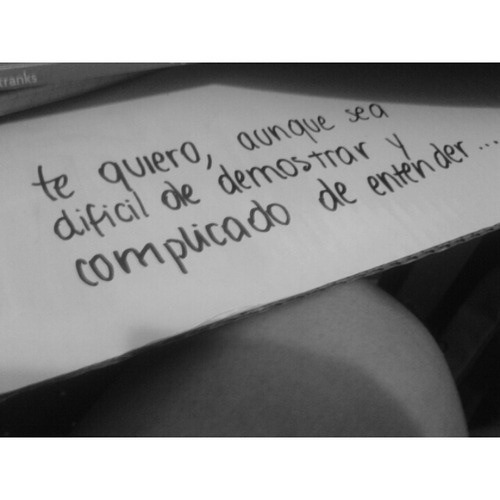 tranks
te quiero, aunque sea
dificil de demostrar y
complicado de entender ...